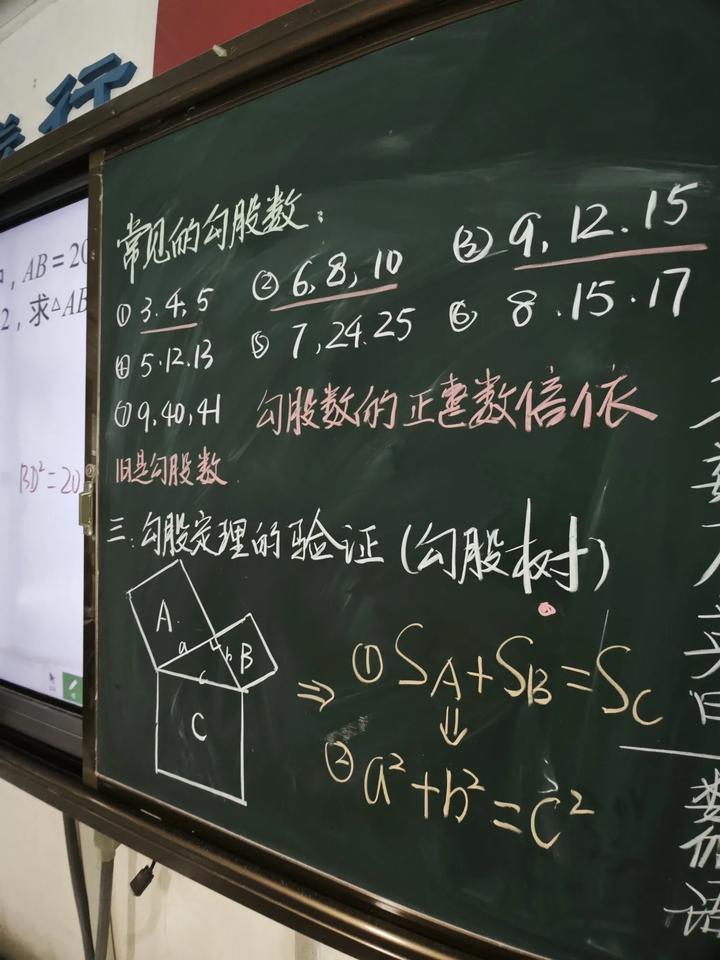 行
, AB=20
2, 求△AB
BD²=20
常见的勾股数:
① 3.4,5 ② 6,8,10 ③ 9,12.15
④ 5.12.13 ⑤ 7,24.25 ⑥ 8.15.17
⑦ 9,40,41 勾股数的正整数倍依
旧是勾股数
三.勾股定理的验证(勾股树)
A
a b B
c
C
⇒ ① S_A+S_B=S_C
⇓
② a²+b²=c²
数
语